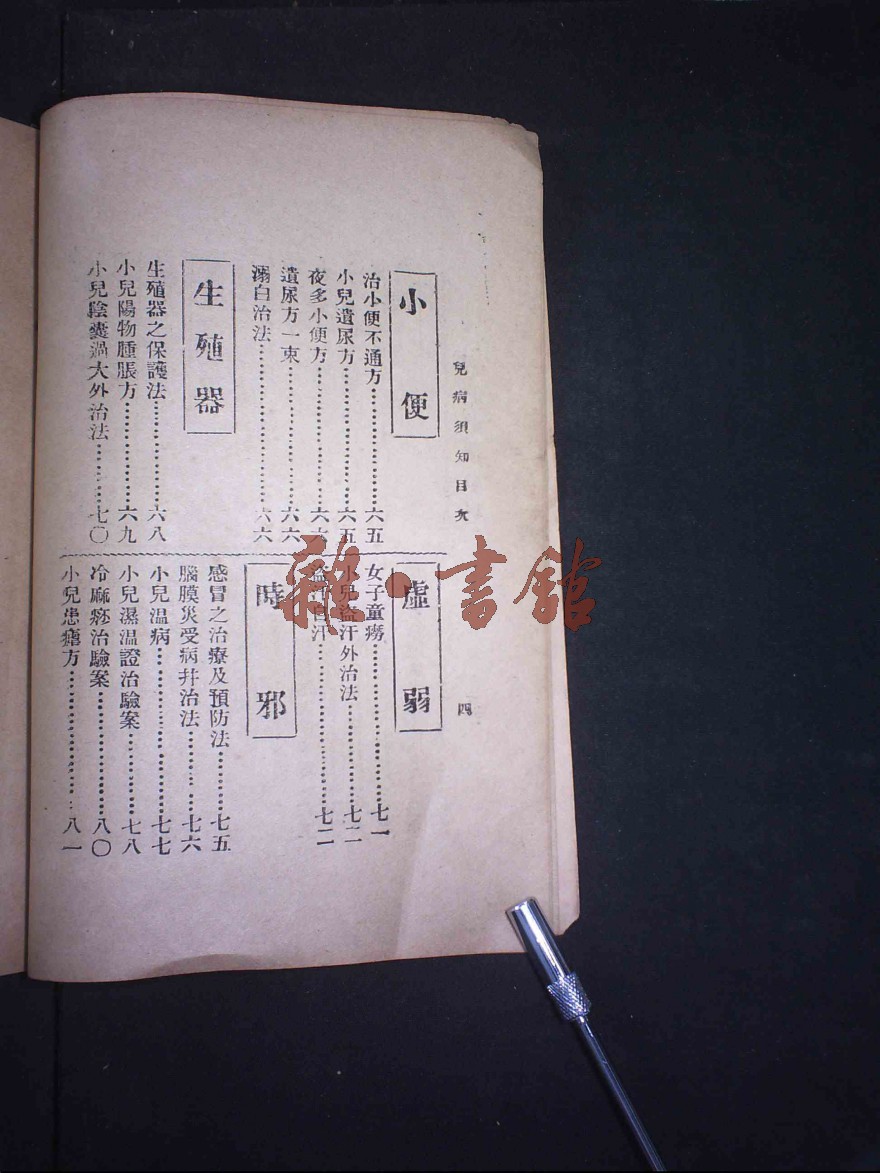 兒病須知目次
四
小便
治小便不通方…………六五
小兒遺尿方…………六五
夜多小便方…………六
遺尿方一束…………六六
溺白治法…………六六
生殖器
生殖器之保護法…………六八
小兒陽物腫脹方…………六九
小兒陰囊過大外治法…………七〇
虛弱
女子童癆…………七一
小兒盜汗外治法…………七二
汗…………七二
時邪
感冒之治療及預防法…………七五
腦膜炎受病幷治法…………七六
小兒温病…………七七
小兒濕温證治驗案…………七八
冷麻痧治驗案…………八〇
小兒患瘧方…………八一
雜·書館